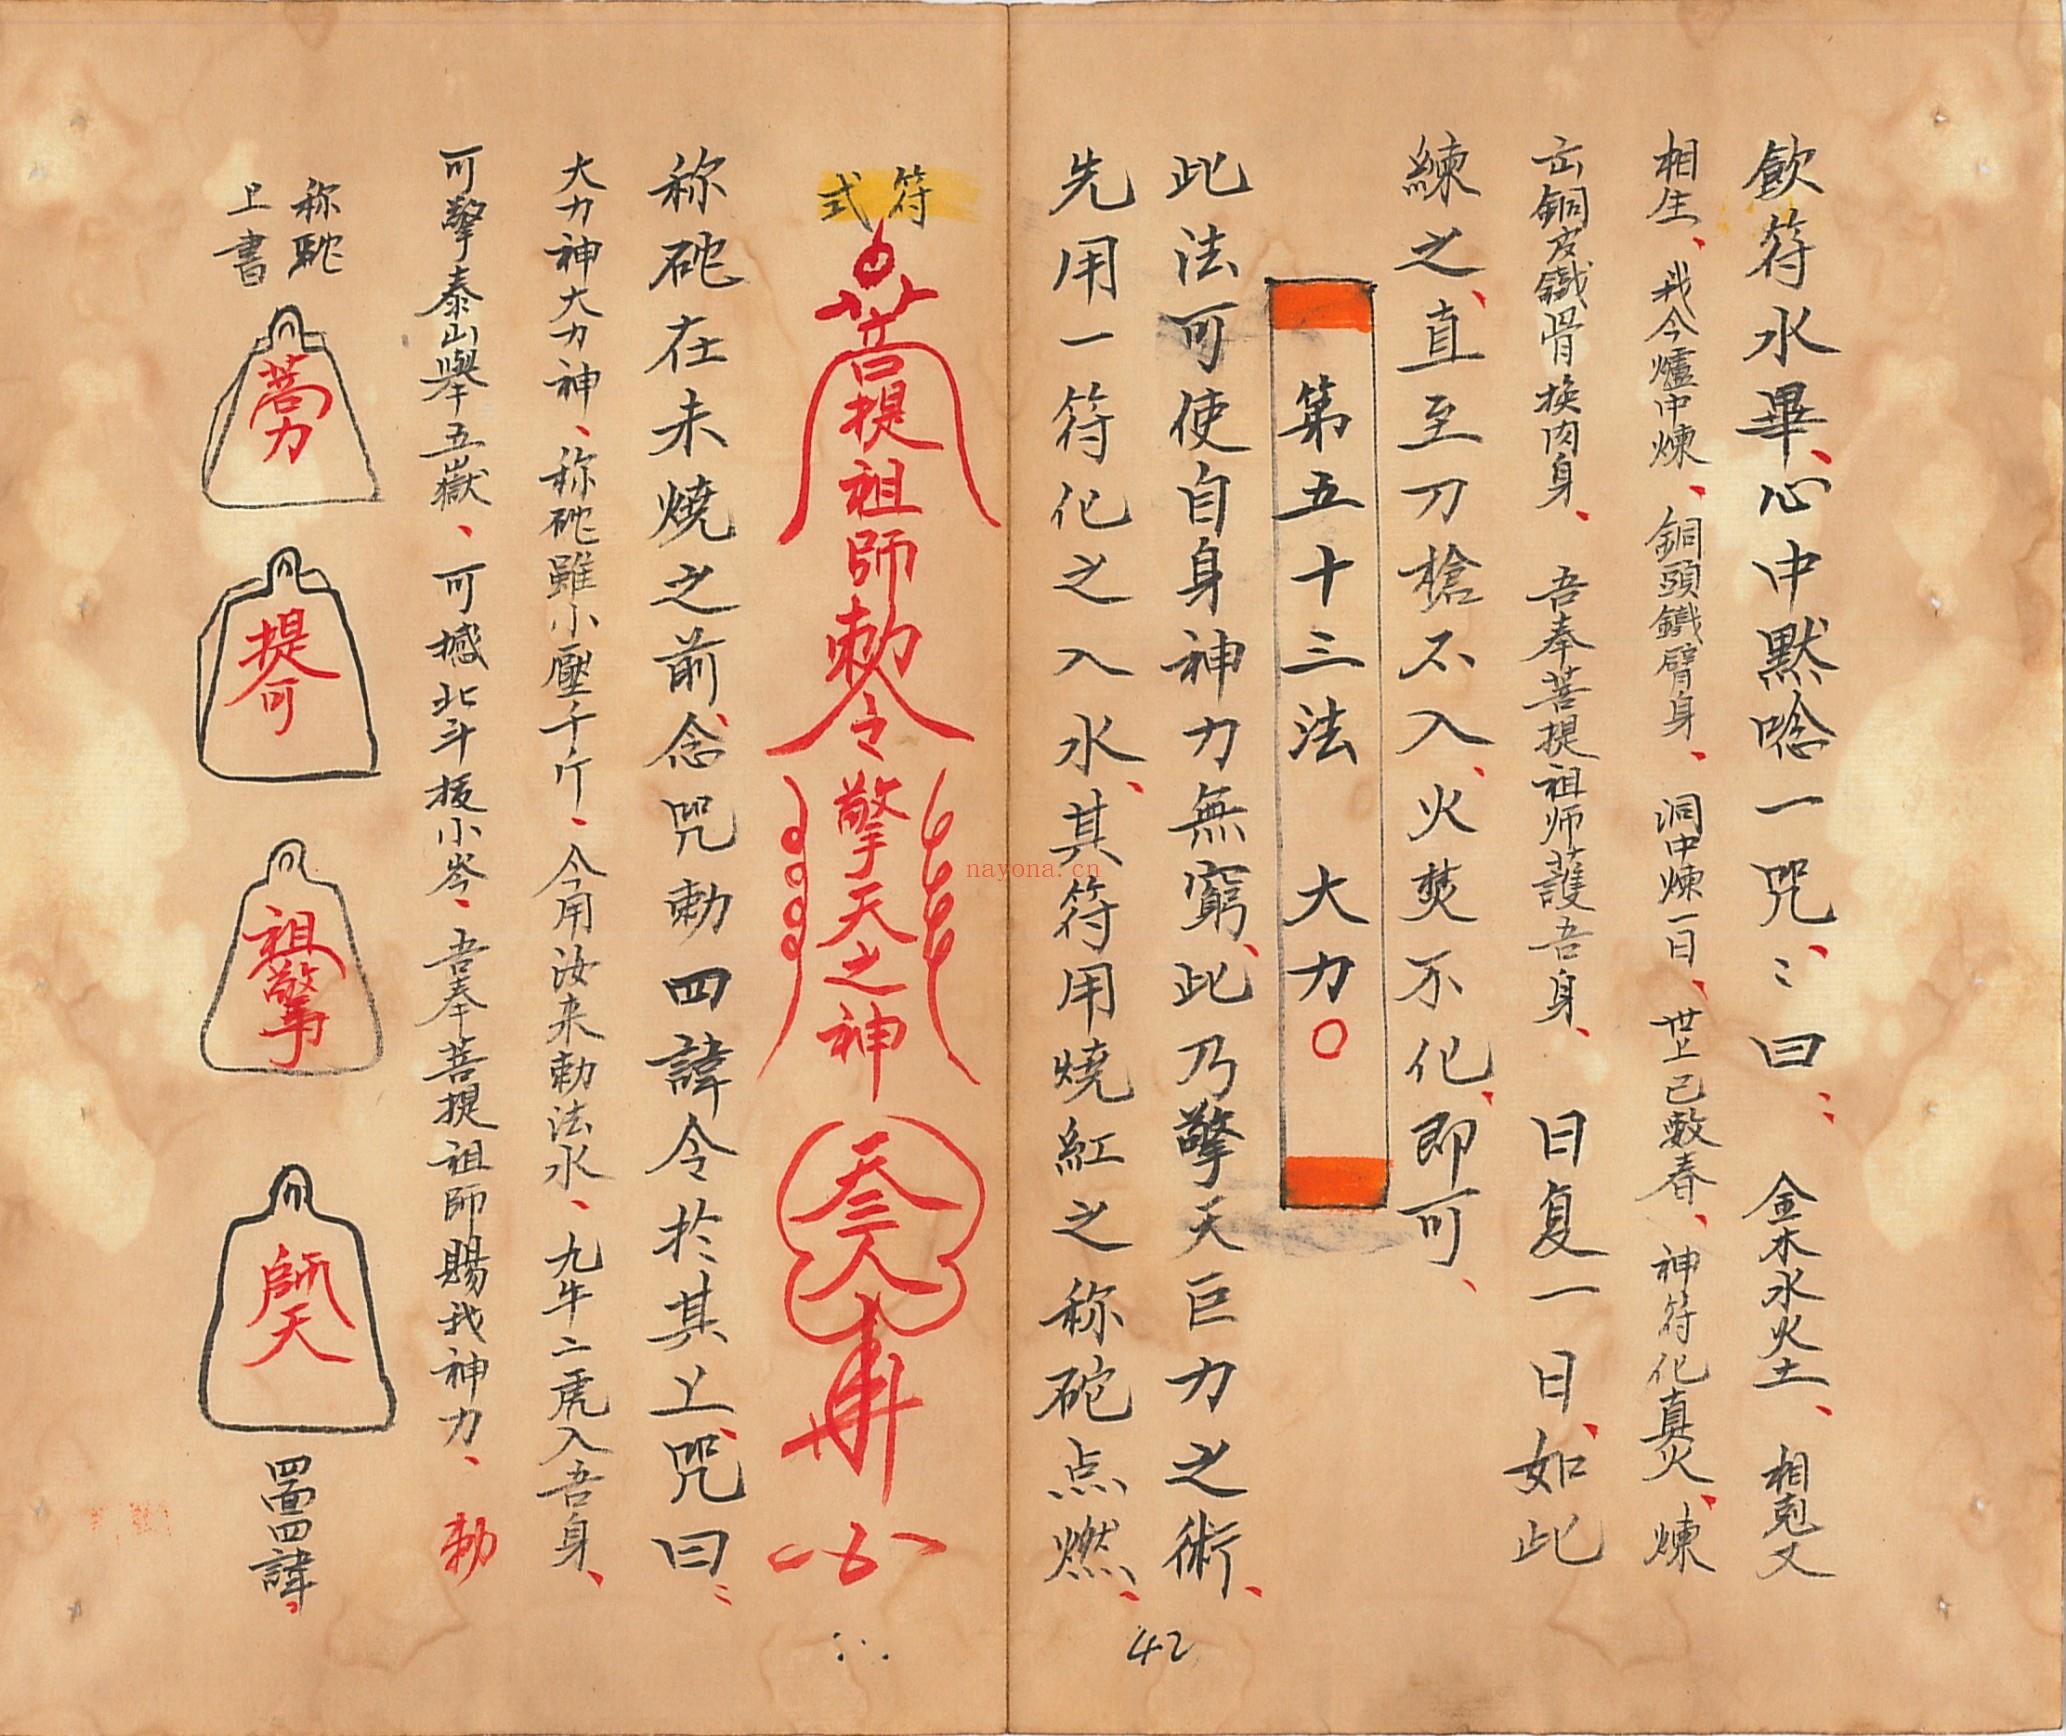 飲符水畢、心中默唸一咒、〻曰〻 金木水火土、相剋又
相生、我今爐中煉、銅頭鐵臂身、洞中煉一日、世上已数春、神符化真火、煉
出銅皮鐵骨換肉身、吾奉菩提祖师護吾身、日复一日、如此
練之、直至刀槍不入、火焚不化、即可、
第五十三法 大力〇
此法可使自身神力無窮、此乃擎天巨力之術、
先用一符化之入水、其符用燒紅之称砣点燃、
42
符式
菩提祖師勅令擎天之神
称砣在未燒之前、念咒勅四諱令於其上、咒曰〻
大力神大力神、称砣雖小壓千斤、今用汝来勅法水、九牛二虎入吾身、
可擎泰山舉五嶽、可撼北斗拔小岑、吾奉菩提祖師賜我神力、勅
称砣上書
菩力
提可
祖擎
師天
四面四諱、
nayona.cn